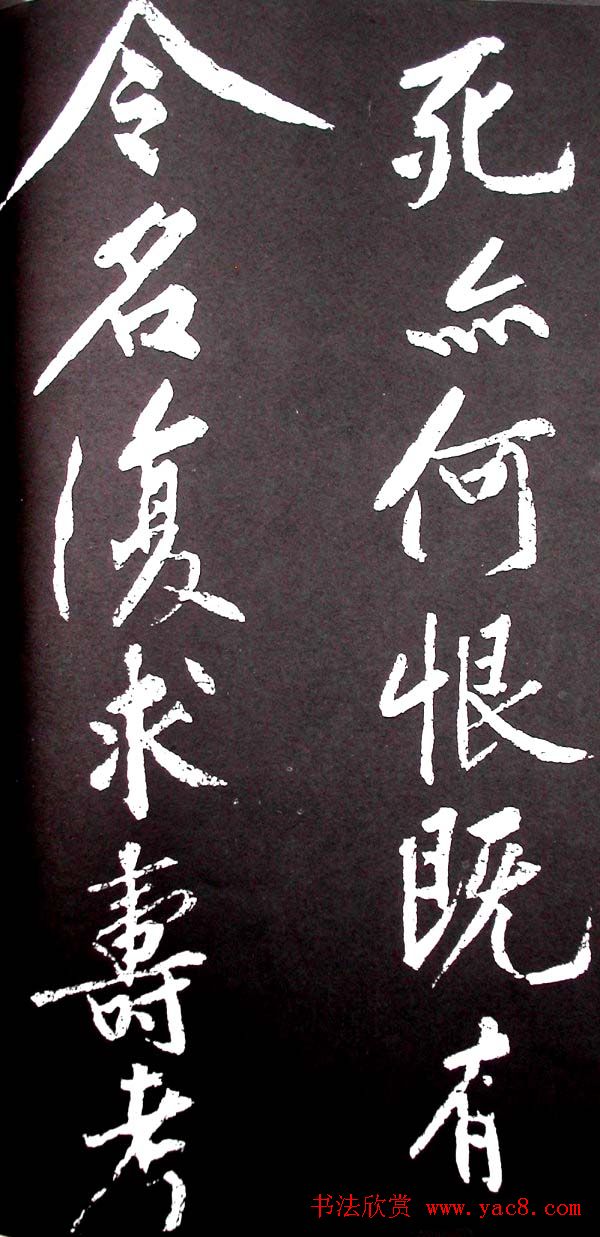 死亦何恨既有
令名復求壽考
书法欣赏 www.yac8.com